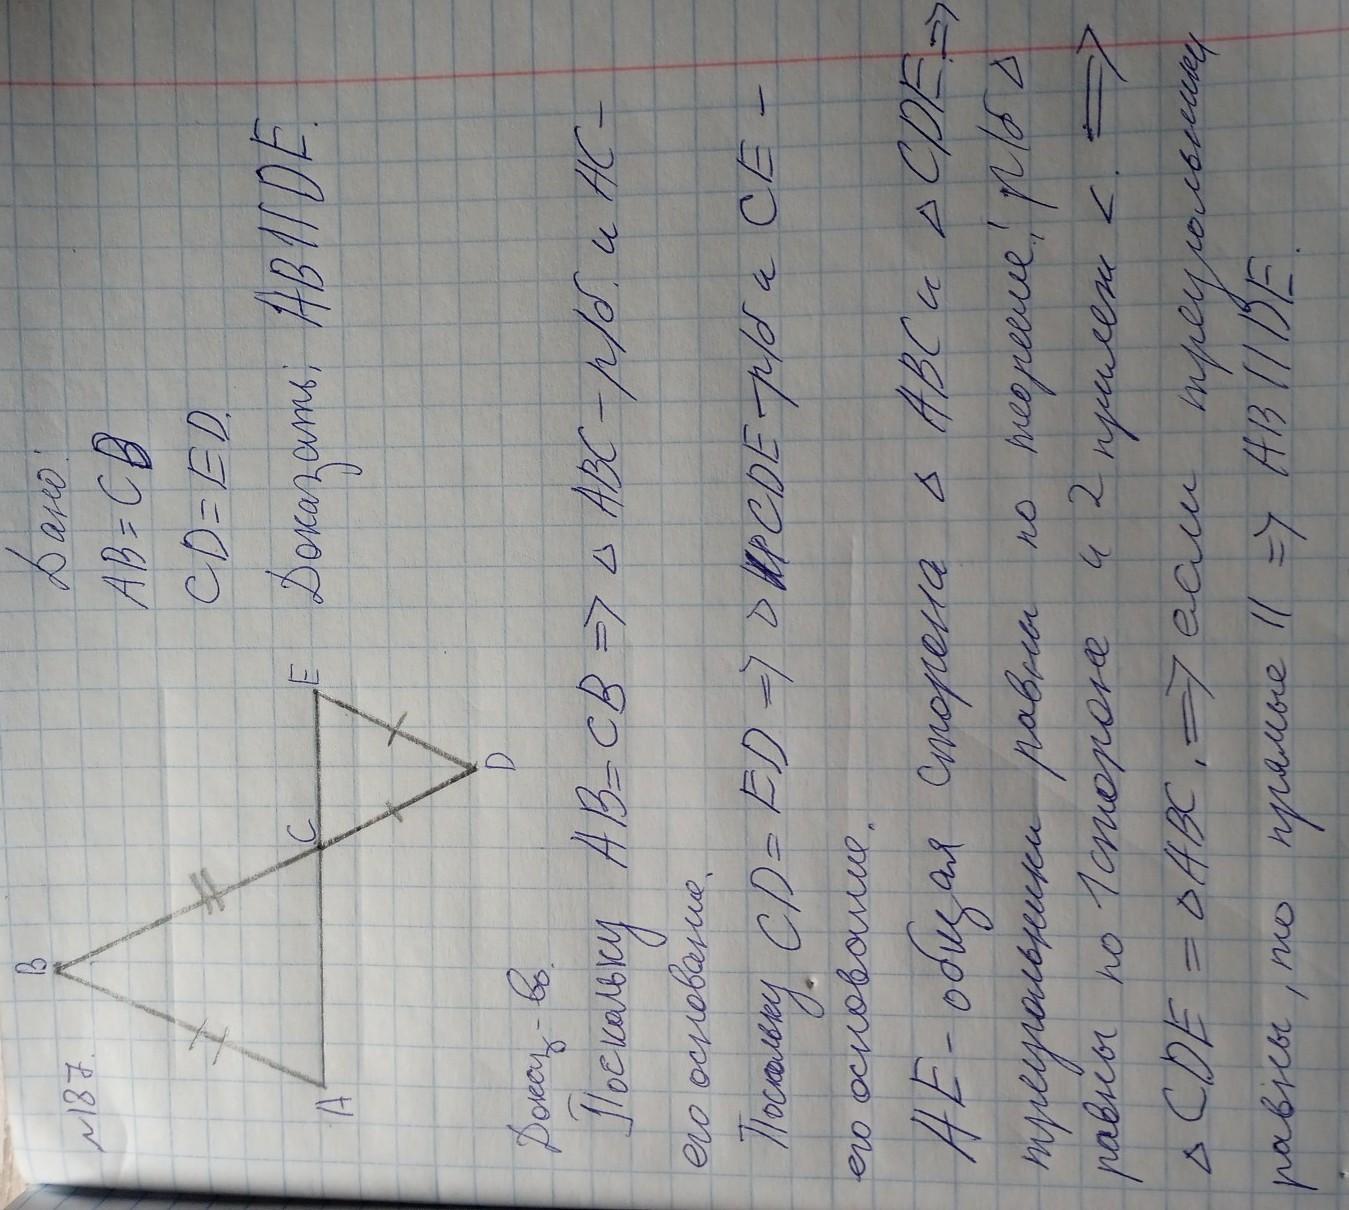 №187.
Дано:
AB = CB
CD = ED.
Доказать: AB || DE.
B
C
E
A
D
Доказ-во.
Поскольку AB = CB => △ ABC - р/б. и AC -
его основание.
Поскольку CD = ED => △ CDE - р/б и CE -
его основание.
AE - общая сторона △ ABC и △ CDE. =>
треугольники равны по теореме: р/б △
равны по 1 стороне и 2 прилеж <. =>
△ CDE = △ ABC. => если треугольники
равны, то прямые || => AB || DE.